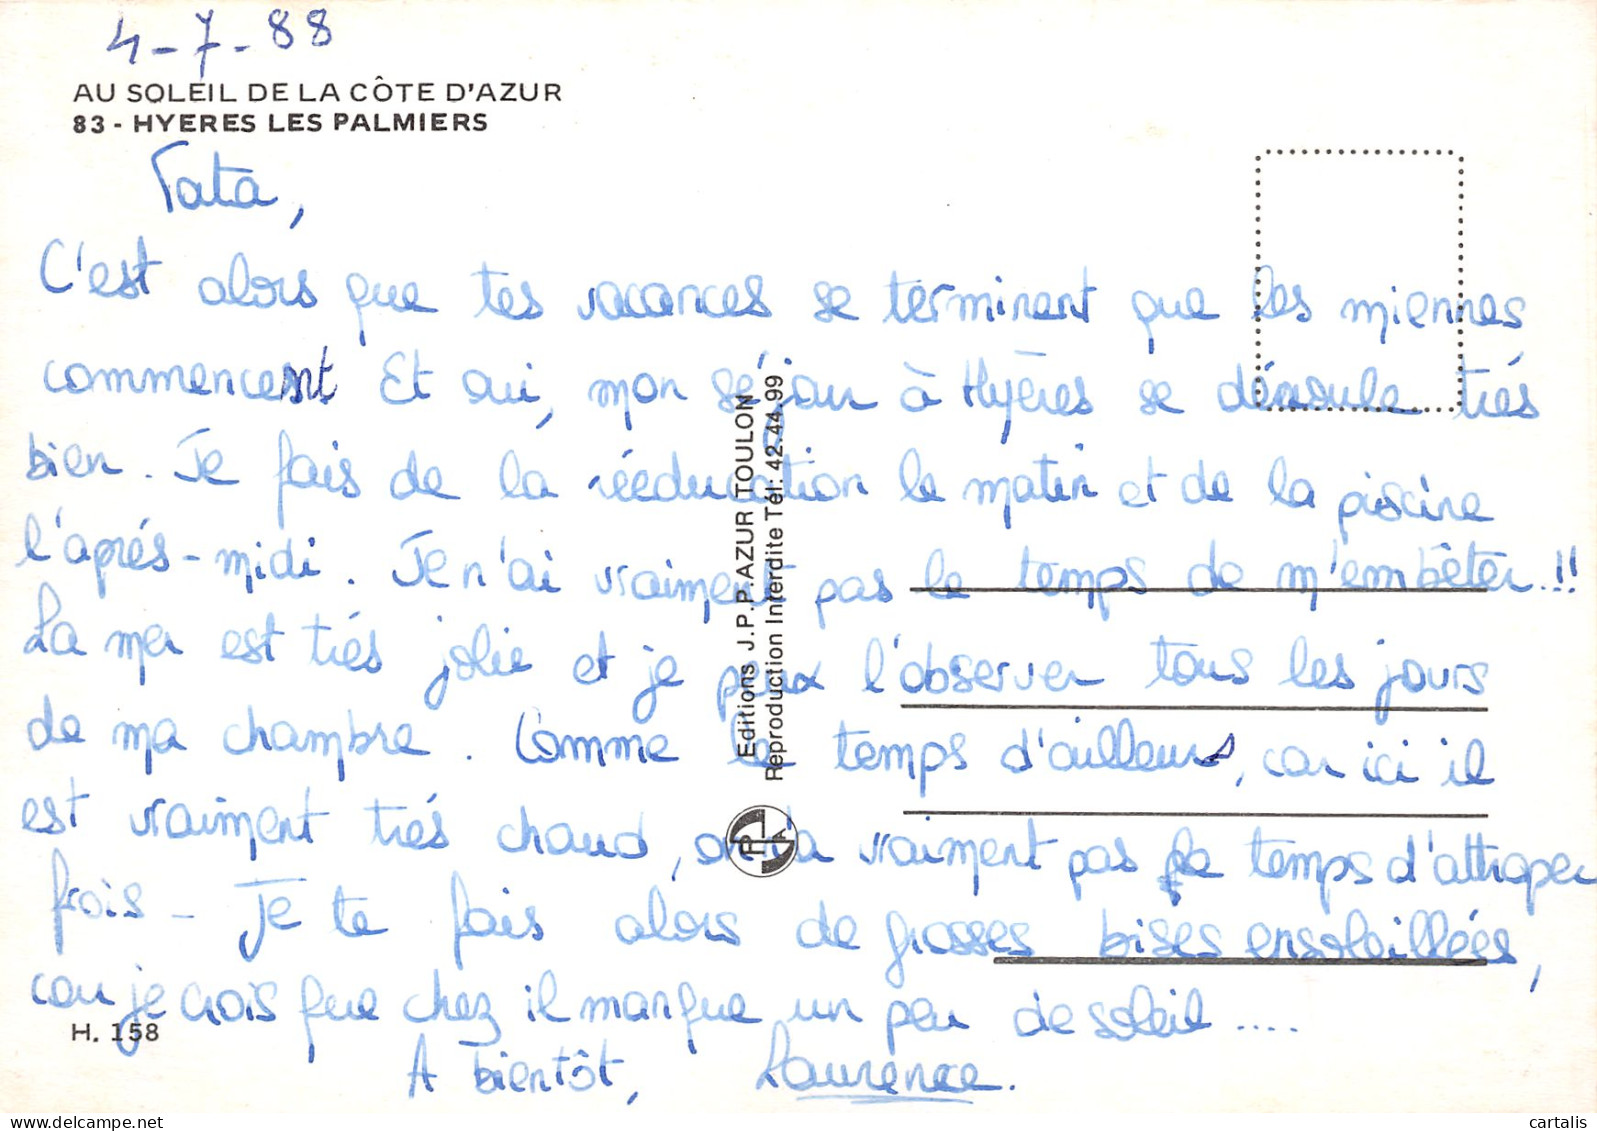 4-7-88
AU SOLEIL DE LA CÔTE D'AZUR
83 - HYERES LES PALMIERS
Tata,
C'est alors que tes vacances se terminent que les miennes
commencent Et oui, mon séjour à Hyères se déroule trés
bien. Je fais de la rééducation le matin et de la piscine
l'aprés-midi. Je n'ai vraiment pas le temps de m'embêter..!!
La mer est trés jolie et je peux l'observer tous les jours
de ma chambre. Comme le temps d'ailleurs, car ici il
est vraiment trés chaud, on n'a vraiment pas le temps d'attraper
frois - Je te fais alors de grosses bises ensoleillées,
car je crois que chez il manque un peu de soleil ....
A bientôt, Laurence.
H. 158
Editions J.P.P. AZUR TOULON
Reproduction Interdite Tél. 42.44.99
cartalis